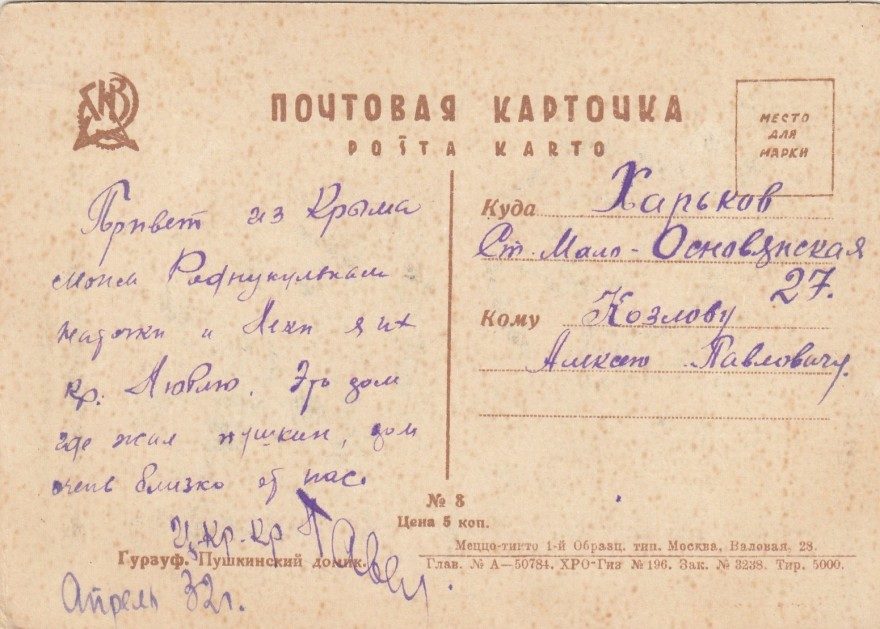 ПОЧТОВАЯ КАРТОЧКА
POŜTA KARTO
МЕСТО
ДЛЯ
МАРКИ
Привет из Крыма
моим
и Лёки я их
кр. Люблю. Это дом
где жил пушкин, дом
очень близко от нас.
Ц. Кр. Кр
Апрель 32 г.
Куда Харьков
Ст. Мало-Основянская
27.
Кому Козлову
Алексею Павловичу
№ 8
Цена 5 коп.
Гурзуф. Пушкинский домик.
Меццо-тинто 1-й Образц. тип. Москва, Валовая, 28.
Глав. № А—50784. ХРО-Гиз № 196. Зак. № 3238. Тир. 5000.